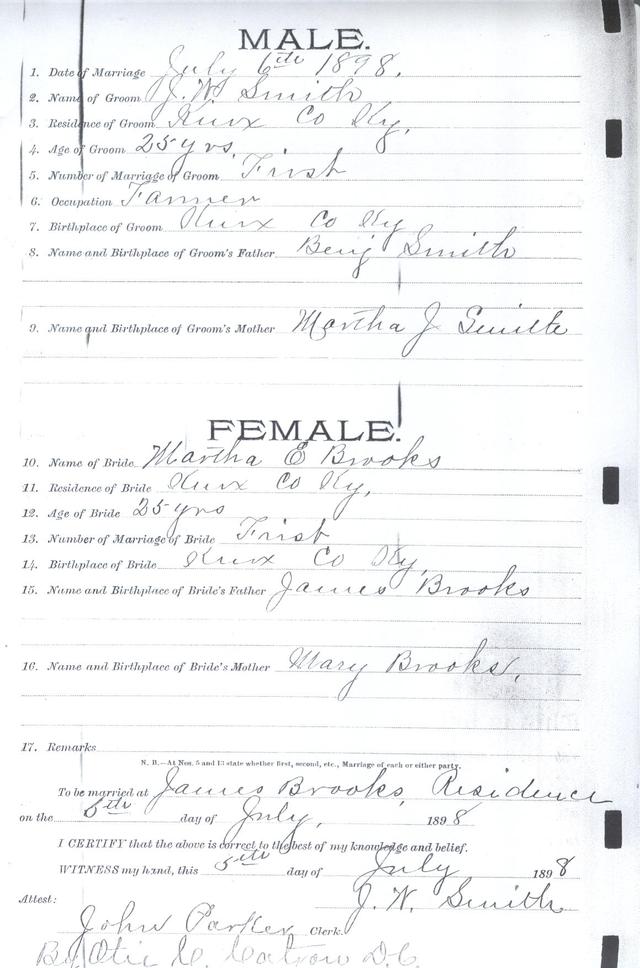 MALE.
1. Date of Marriage July 6th 1898.
2. Name of Groom J. N. Smith
3. Residence of Groom Knox Co Ky,
4. Age of Groom 25 yrs,
5. Number of Marriage of Groom First
6. Occupation Farmer
7. Birthplace of Groom Knox Co Ky
8. Name and Birthplace of Groom's Father Benj Smith
9. Name and Birthplace of Groom's Mother Martha J Smith
FEMALE.
10. Name of Bride Martha E Brooks
11. Residence of Bride Knox Co Ky,
12. Age of Bride 25 yrs
13. Number of Marriage of Bride First
14. Birthplace of Bride Knox Co Ky,
15. Name and Birthplace of Bride's Father James Brooks
16. Name and Birthplace of Bride's Mother Mary Brooks,
17. Remarks
N. B.—At Nos. 5 and 13 state whether first, second, etc., Marriage of each or either party.
To be married at James Brooks, Residence
on the day of July, 1898
I CERTIFY that the above is correct to the best of my knowledge and belief.
WITNESS my hand, this 5th day of July 1898
J. N. Smith
Attest:
John Parker Clerk.
By D. C.